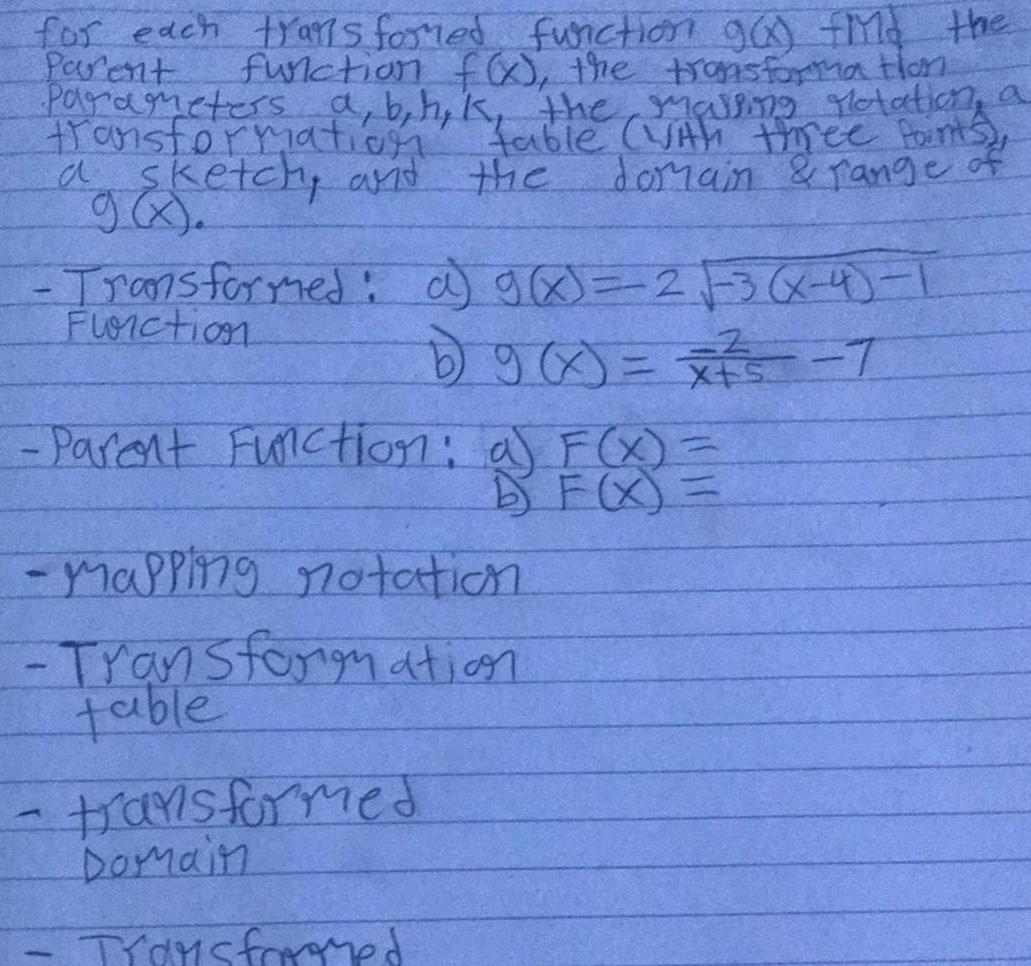 for each transfomed function g(x) find the
Parent function f(x), the transformation
Parameters a, b, h, k, the mapping notation, a
transformation table (with three Points),
a sketch, and the domain & range of
g(x).
- Transformed: a) g(x)=-2√-3(x-4)-1
Function
b) g(x) = -2/x+5 -7
- Parent Function: a) F(x) =
b) F(x) =
- mapping notation
- Transformation
table
- transformed
Domain
- Transformed